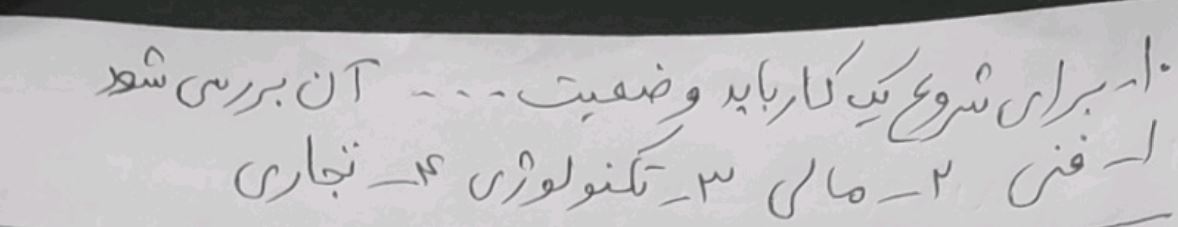 ۱۰- برای شروع یک کار باید وضعیت .... آن بررسی شود
۱- فنی ۲- مالی ۳- تکنولوژی ۴- تجاری